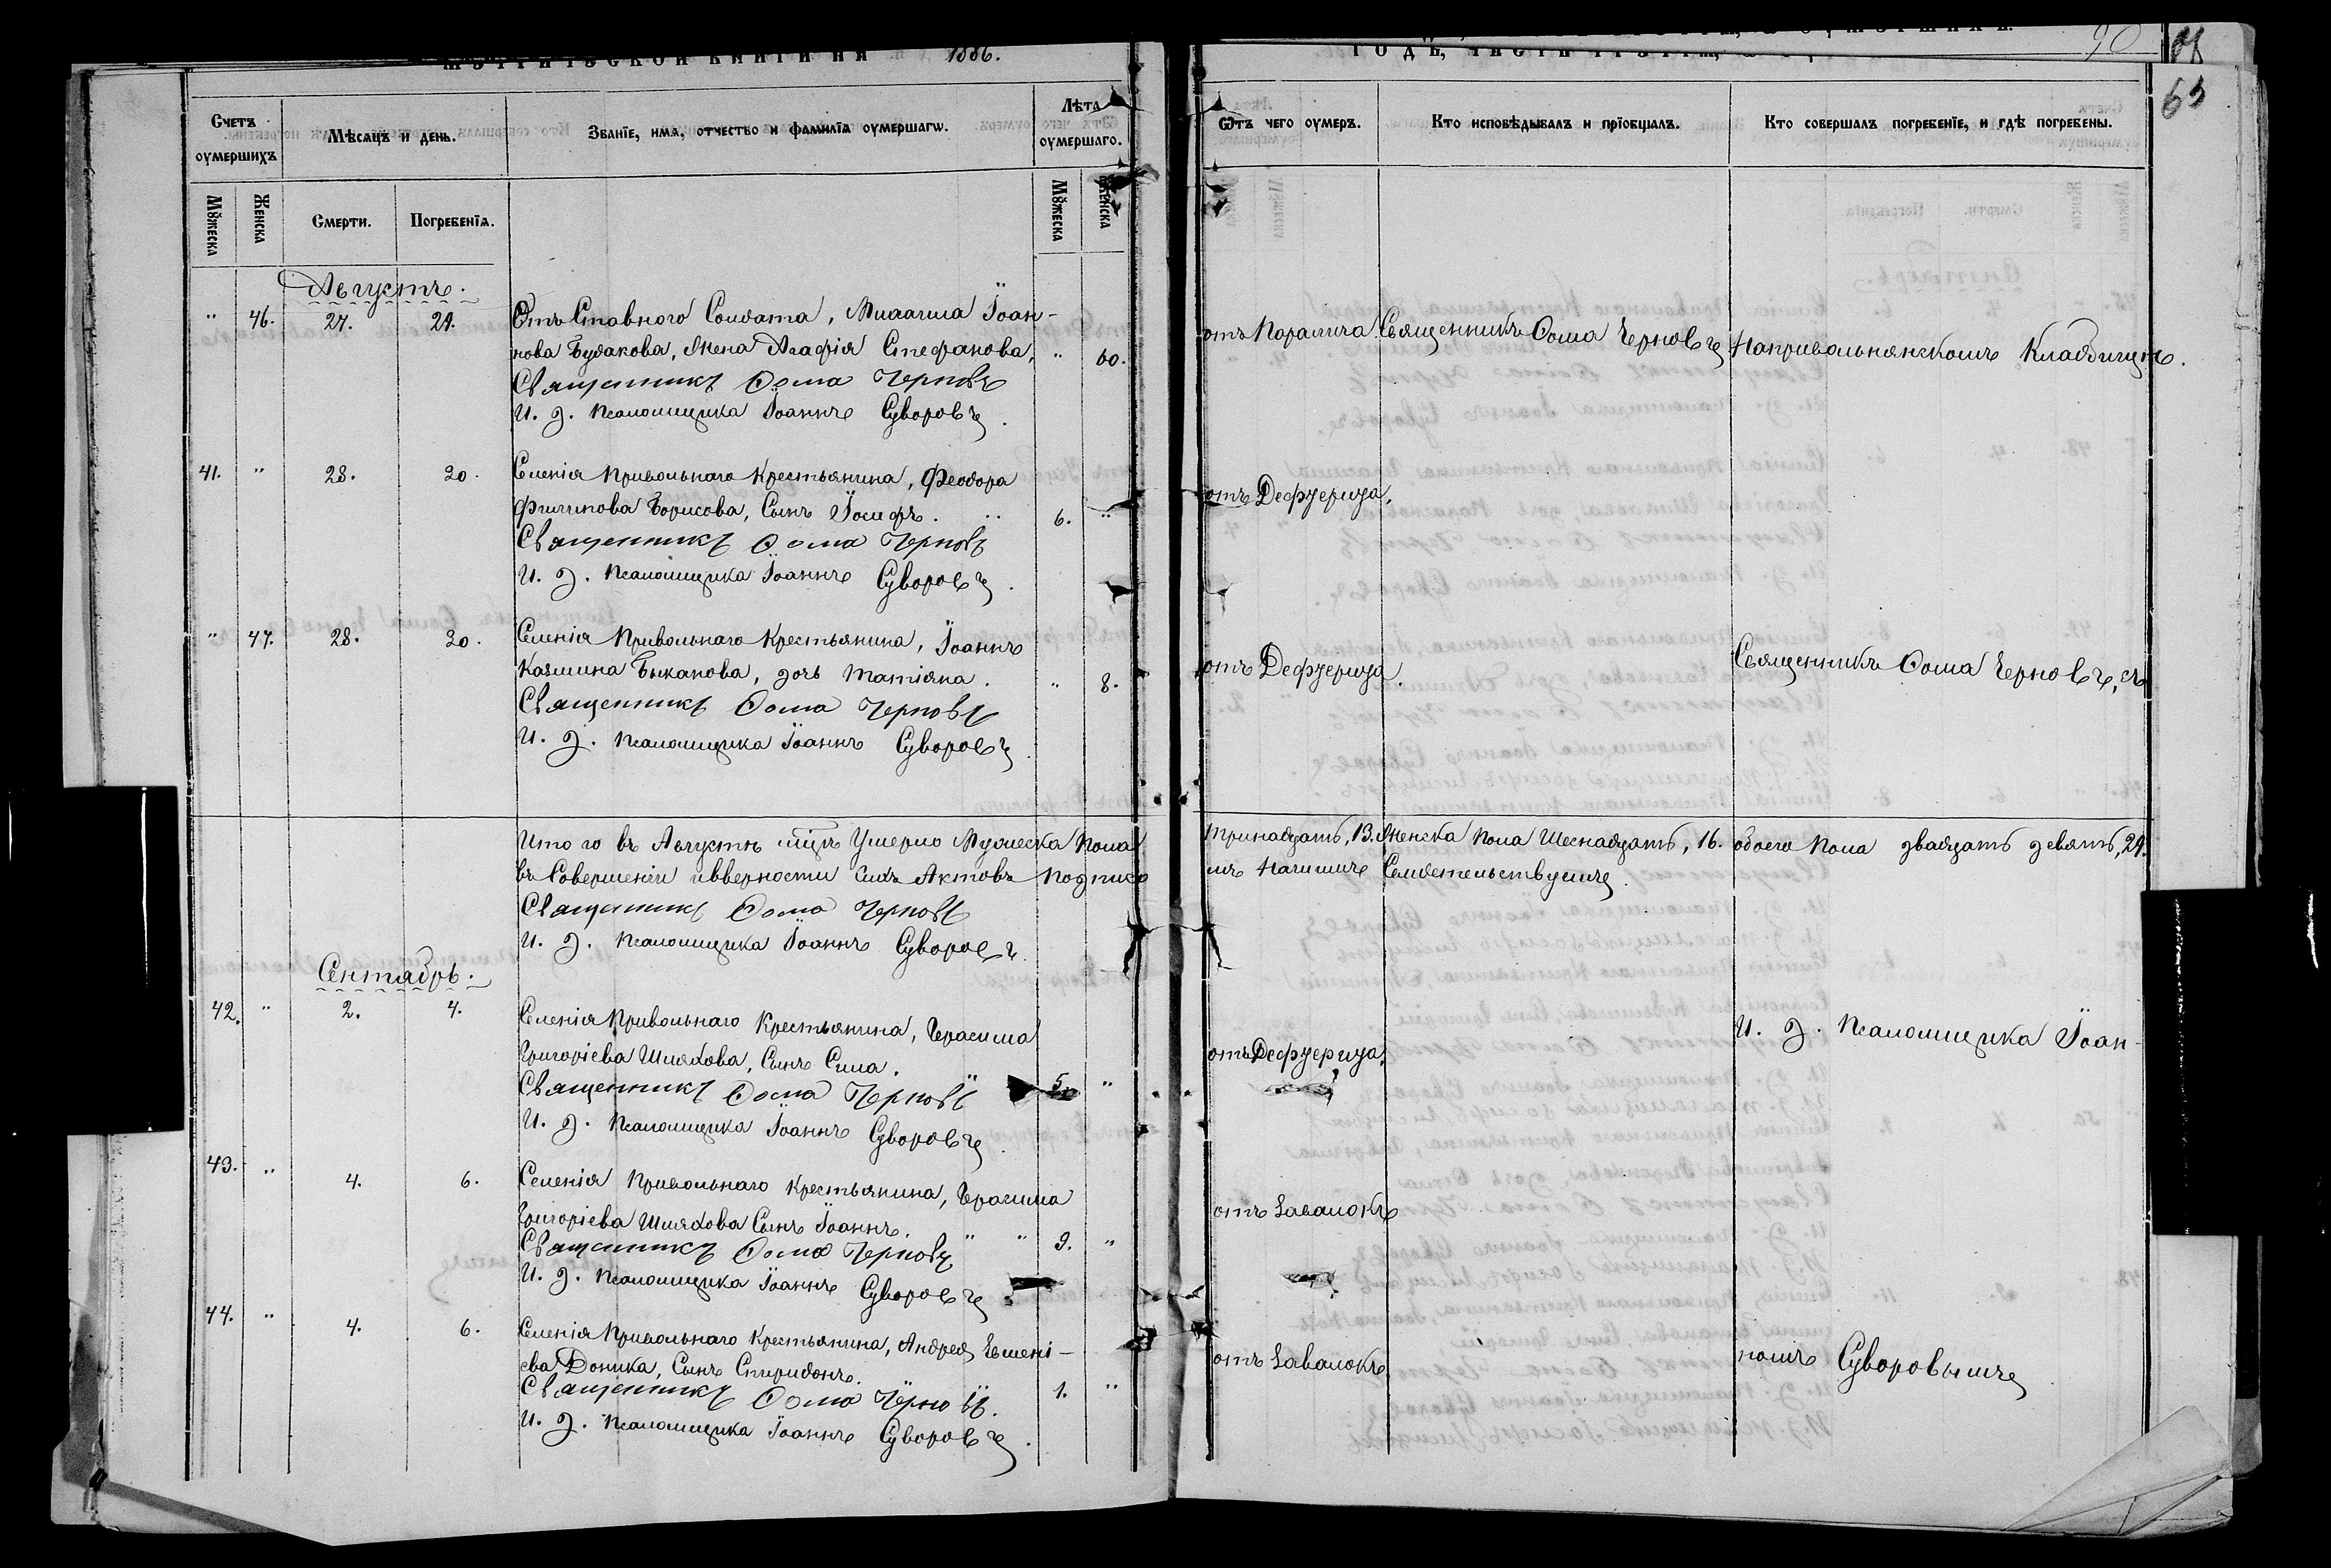 МЕТРИЧЕСКОЙ КНИГИ НА 1886.
Счетъ оумершихъ
Мѣсяцъ и день.
Званїе, имѧ, отчество и фамилїа оумершагѡ.
Лѣта оумершаго.
Мꙋжеска
Женска
Смерти.
Погребенїѧ.
Мꙋжеска
Женска
Августъ.
" 46. 27. 29. Отъ Ставного Солдата, Михаила Іоан-
нова Будакова, Жена Агафія Стефанова, " 60.
Священникъ Ѳома Черновъ
И. д. Псаломщика Іоаннъ Суворовъ.
41. " 28. 30. Селенія Привольнаго Крестьянина, Феодора
Филипова Борисова, Сынъ Іосифъ. 6. "
Священникъ Ѳома Черновъ
И. д. Псаломщика Іоаннъ Суворовъ.
" 47. 28. 30. Селенія Привольнаго Крестьянина, Іоаннъ
Казмина Быканова, дочь Татіяна. " 8.
Священникъ Ѳома Черновъ
И. д. Псаломщика Іоаннъ Суворовъ.
Итого въ Августѣ мцѣ Умерло Мужеска Пола
въ Совершеніи ивверности сихъ Актовъ Подписо
Священникъ Ѳома Черновъ
И. д. Псаломщика Іоаннъ Суворовъ.
Сентябрь.
42. " 2. 4. Селенія Привольнаго Крестьянина, Герасима
Григоріева Шляхова, Сынъ Сила.
Священникъ Ѳома Черновъ 5. "
И. д. Псаломщика Іоаннъ Суворовъ
43. " 4. 6. Селенія Привольнаго Крестьянина, Герасима
Григоріева Шляхова Сынъ Іоаннъ.
Священникъ Ѳома Черновъ " " 3. "
И. д. Псаломщика Іоаннъ Суворовъ
44. " 4. 6. Селенія Привольнаго Крестьянина, Андрея
ева Доника, Сынъ Спиридонъ.
Священникъ Ѳома Черновъ. 1. "
И. д. Псаломщика Іоаннъ Суворовъ.
ГОДЪ, ЧАСТИ ТРЕТІЕЙ,
90
63
Ѿтъ чего оумеръ.
Кто исповѣдывалъ и прїобщалъ.
Кто совершалъ погребенїе, и гдѣ погребены.
отъ Поралича Священникъ Ѳома Черновъ Напривольнянскомъ Кладбищѣ.
отъ Дефтерита.
отъ Дефтерита. Священникъ Ѳома Черновъ, съ
Тринадцать, 13. Женска Пола Шеснадцать, 16. обоего Пола двадцать девять, 29.
мъ Нашимъ Свидетельствуемъ
отъ Дефтерита. И. д. Псаломщика Іоан-
отъ Завалокъ
отъ Завалокъ номъ Суворовымъ